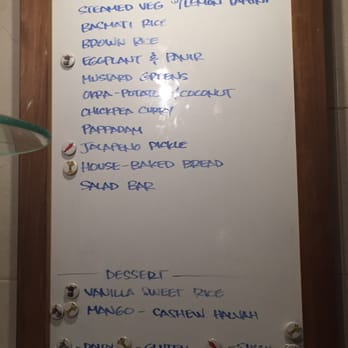 STEAMED VEG W/LEMON TAHINI
BASMATI RICE
BROWN RICE
EGGPLANT & PANIR
MUSTARD GREENS
OKRA-POTATO COCONUT
CHICKPEA CURRY
PAPPADAM
JALAPENO PICKLE
HOUSE-BAKED BREAD
SALAD BAR
DESSERT
VANILLA SWEET RICE
MANGO - CASHEW HALVAH
-DAIRY -GLUTEN